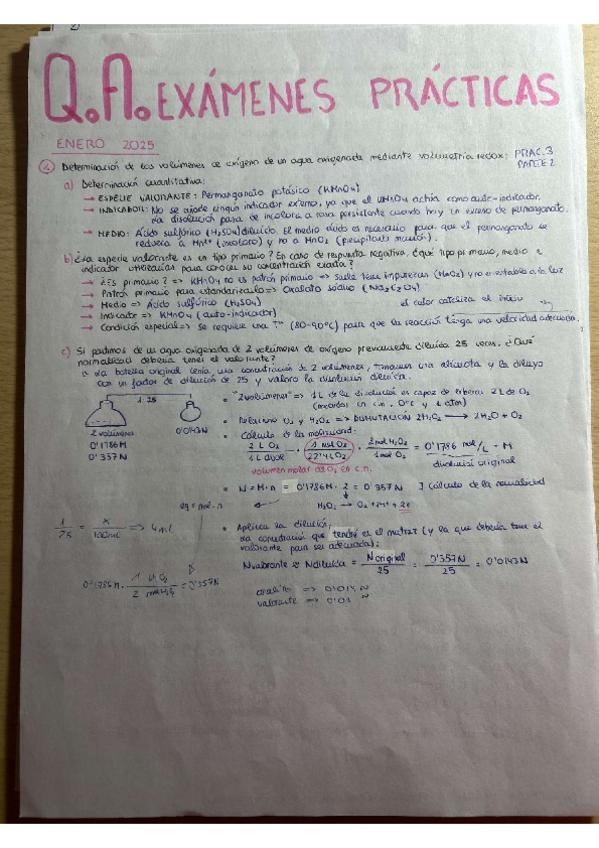 Q.A. EXÁMENES PRÁCTICAS
ENERO 2025
Determinación de los volúmenes de oxígeno de un agua oxigenada mediante volumetría redox: PRAC.3
PARTE 2
a) Determinación cuantitativa:
→ ESPECIE VALORANTE: Permanganato potásico (KMnO4)
→ INDICADOR: No se añade ningún indicador externo, ya que el KMnO4 actúa como auto-indicador.
La disolución pasa de incolora a rosa persistente cuando hay un exceso de permanganato.
→ MEDIO: Ácido sulfúrico (H2SO4) diluido. El medio ácido es necesario para que el permanganato se
reduzca a Mn2+ (incoloro) y no a MnO2 (precipitado marrón).
b) ¿La especie valorante es un tipo primario? En caso de respuesta negativa, ¿qué tipo primario, medio e
indicador utilizarías para conocer su concentración exacta?
→ ¿ES primario? => KMnO4 no es patrón primario → suele tener impurezas (MnO2) y no es estable a la luz
→ Patrón primario para estandarizarlo => Oxalato sódico (Na2C2O4)
→ Medio => Ácido sulfúrico (H2SO4) el calor cataliza el
→ Indicador => KMnO4 (auto-indicador)
→ Condición especial => Se requiere una Tª (80-90ºC) para que la reacción tenga una velocidad adecuada.
c) Si partimos de un agua oxigenada de 2 volúmenes de oxígeno previamente diluida 25 veces. ¿Qué
normalidad debería tener el valorante?
la botella original tenía una concentración de 2 volúmenes, tomamos una alícuota y la diluyo
con un factor de dilución de 25 y valoro la disolución diluida.
1:25
• "2 volúmenes" => 1L de la disolución es capaz de liberar 2L de O2
(medidos en c.n., 0ºC y 1 atm)
2 volúmenes 0'0143N
0'1786M
0'357N
• Relaciono O2 y H2O2 => DISMUTACIÓN 2H2O2 → 2H2O + O2
• Cálculo de la molaridad:
2L O2 / 1L disol · 1 mol O2 / 22'4L O2 · 2 mol H2O2 / 1 mol O2 = 0'1786 mol/L = M
volumen molar del O2 en c.n. disolución original
• N = M·n = 0'1786M · 2 = 0'357N ] Cálculo de la normalidad
H2O2 → O2 + 2H+ + 2e
1/25 = x/100ml => 4ml
• Aplico la dilución,
la concentración que tendré en el matraz (y la que debería tener el
valorante para ser adecuada):
Nvalorante ≈ Ndiluida = Noriginal/25 = 0'357N/25 = 0'0143N